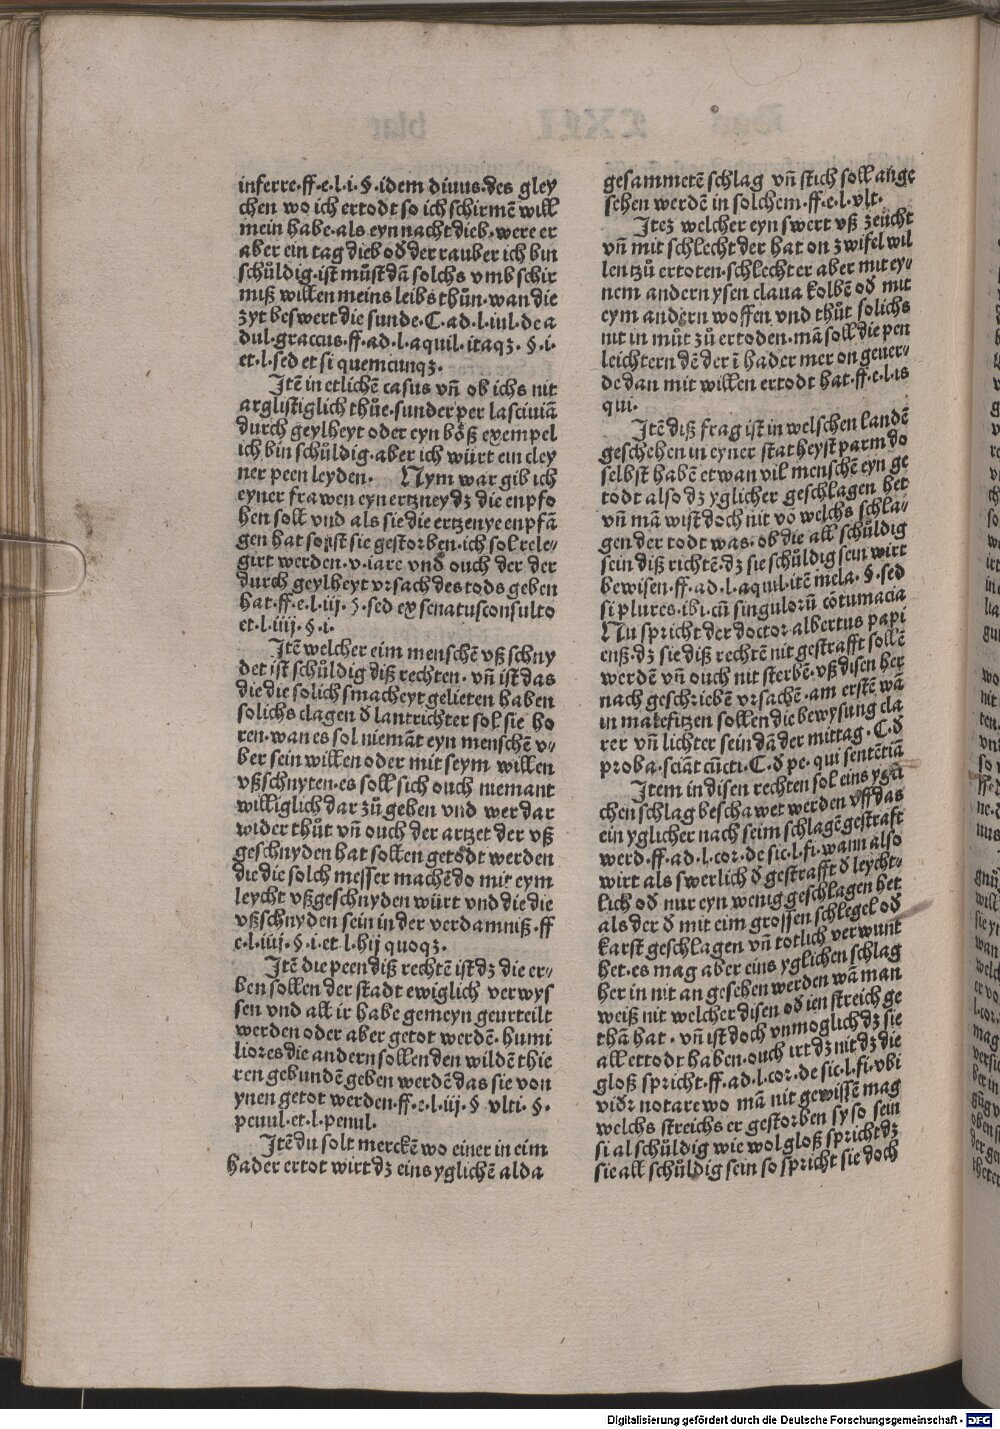 inferre·ff·e·l·i·§·idem diuus·des gley
chen wo ich ertodt so ich schirmē will
mein habe·als eyn nacht dieb·were er
aber ein tag dieb oď der rauber ich bin
schůldig·ist můst dā solchs vmb schir
miß willen meins leibs thůn·wan die
zyt beswert die sunde·C·ad·l·iul·de a
dul·graccus·ff·ad·l·aquil·itaqꝫ·§·i·
et·l·sed et si quemcunqꝫ·
Jtē in etlichē casus vñ ob ichs nit
arglistiglich thůe·sunder per lasciuiā
durch geylheyt oder eyn bőß exempel
ich bin schůldig·aber ich würt ein cley
ner peen leyden· Nym war gib ich
eyner frawen eyn ertzney dꝫ die enpfo
hen soll vnd als sie die ertzenye enpfā
gen hat so ist sie gestorben·ich sol rele⸗
girt werden·v·iare vnd ouch der der
durch geylheyt vrsach des tods geben
hat·ff·e·l·iij·§·sed ex senatusconsulto
et·l·iiij·§·i·
Jtē welcher eim menschē vß schny
det ist schůldig diß rechten·vñ ist das
die die solich smacheyt gelieten haben
solichs clagen ď lantrichter sol sie ho
ren·wan es sol niemāt eyn menschē v⸗
ber sein willen oder mit seym willen
vßschnyten·es soll sich ouch niemant
williglich dar zů geben vnd wer dar
wider thůt vñ ouch der artzet der vß
geschnyden hat sollen getődt werden
die die solch messer machē do mit eym
leycht vßgeschnyden würt vnd die die
vßschnyden sein in der verdamniß·ff
e·l·iiij·§·i·et l·hij quoqꝫ·
Jtē die peen diß rechtē ist dꝫ die er⸗
ben sollen der stadt ewiglich verwys
sen vnd all ir habe gemeyn geurteilt
werden oder aber getot werdē·humi
liores die andern sollen den wildē thie
ren gebundē geben werdē das sie von
ynen getot werden·ff·e·l·iij·§ vlti·§·
penul·et·l·penul·
Jtē du solt merckē wo einer in eim
hader ertot wirt dꝫ eins yglichē alda
gesammetē schlag vñ stich soll ange
sehen werdē in solchem·ff·e·l·vlt·
Jteꝫ welcher eyn swert vß zeücht
vñ mit schlecht der hat on zwifel wil
len tzů ertoten·schlecht er aber mit ey⸗
nem andern ysen claua kolbē oď mit
eym andern woffen vnd thůt solichs
nit in můt zů ertoden·mā soll die pen
leichtern dē der ī hader mer on geuer⸗
de dan mit willen ertodt hat·ff·e·l·is
qui·
Jtē diß frag ist in welschen landē
geschehen in eyner stat heyst parm do
selbst habē etwan vil menschē eyn ge
todt also dꝫ yglicher geschlagen het
vñ mā wist doch nit vō welchs schla⸗
gen der todt was·ob die all schůldig
sein diß richtē·dꝫ sie schůldig sein wirt
bewisen·ff·ad·l·aquil·itē mela·§·sed
si plures·ibi·cū singulorū cōtumacia
Nu spricht der doctor albertus papi
enß·dꝫ sie diß rechtē nit gestrafft sollē
werdē vñ ouch nit sterbē·vß disen her
nach geschriebē vrsachē·am erstē wā
in malefitzen sollen die bewysung cla
rer vñ lichter sein dā der mittag·C·ď
proba·sciāt cūcti·C·ď pe·qui sentētiā
Jtem in disen rechten sol eins ygli
chen schlag beschawet werden vff das
ein yglicher nach seim schlagē gestraft
werd·ff·ad·l·cor·de sic·l·fi·wann also
wirt als swerlich ď gestrafft ď leycht⸗
lich oď nur eyn wenig geschlagen het
als der ď mit eim grossen schlegel oď
karst geschlagen vñ totlich verwunt
het·es mag aber eins yglichen schlag
her in nit an gesehen werden wā man
weiß nit welcher disen oď ien streich ge
thā hat·vñ ist doch vnmoglich dꝫ sie
all ettodt haben·ouch irt dꝫ nit dꝫ die
gloß spricht·ff·ad·l·cor·de sic·l·fi·vbi
vidr notare wo mā nit gewissē mag
welchs streichs er gestorben sy so sein
si al schůldig wie wol gloß spricht dꝫ
sie all schůldig sein so spricht sie doch
Digitalisierung gefördert durch die Deutsche Forschungsgemeinschaft - DFG